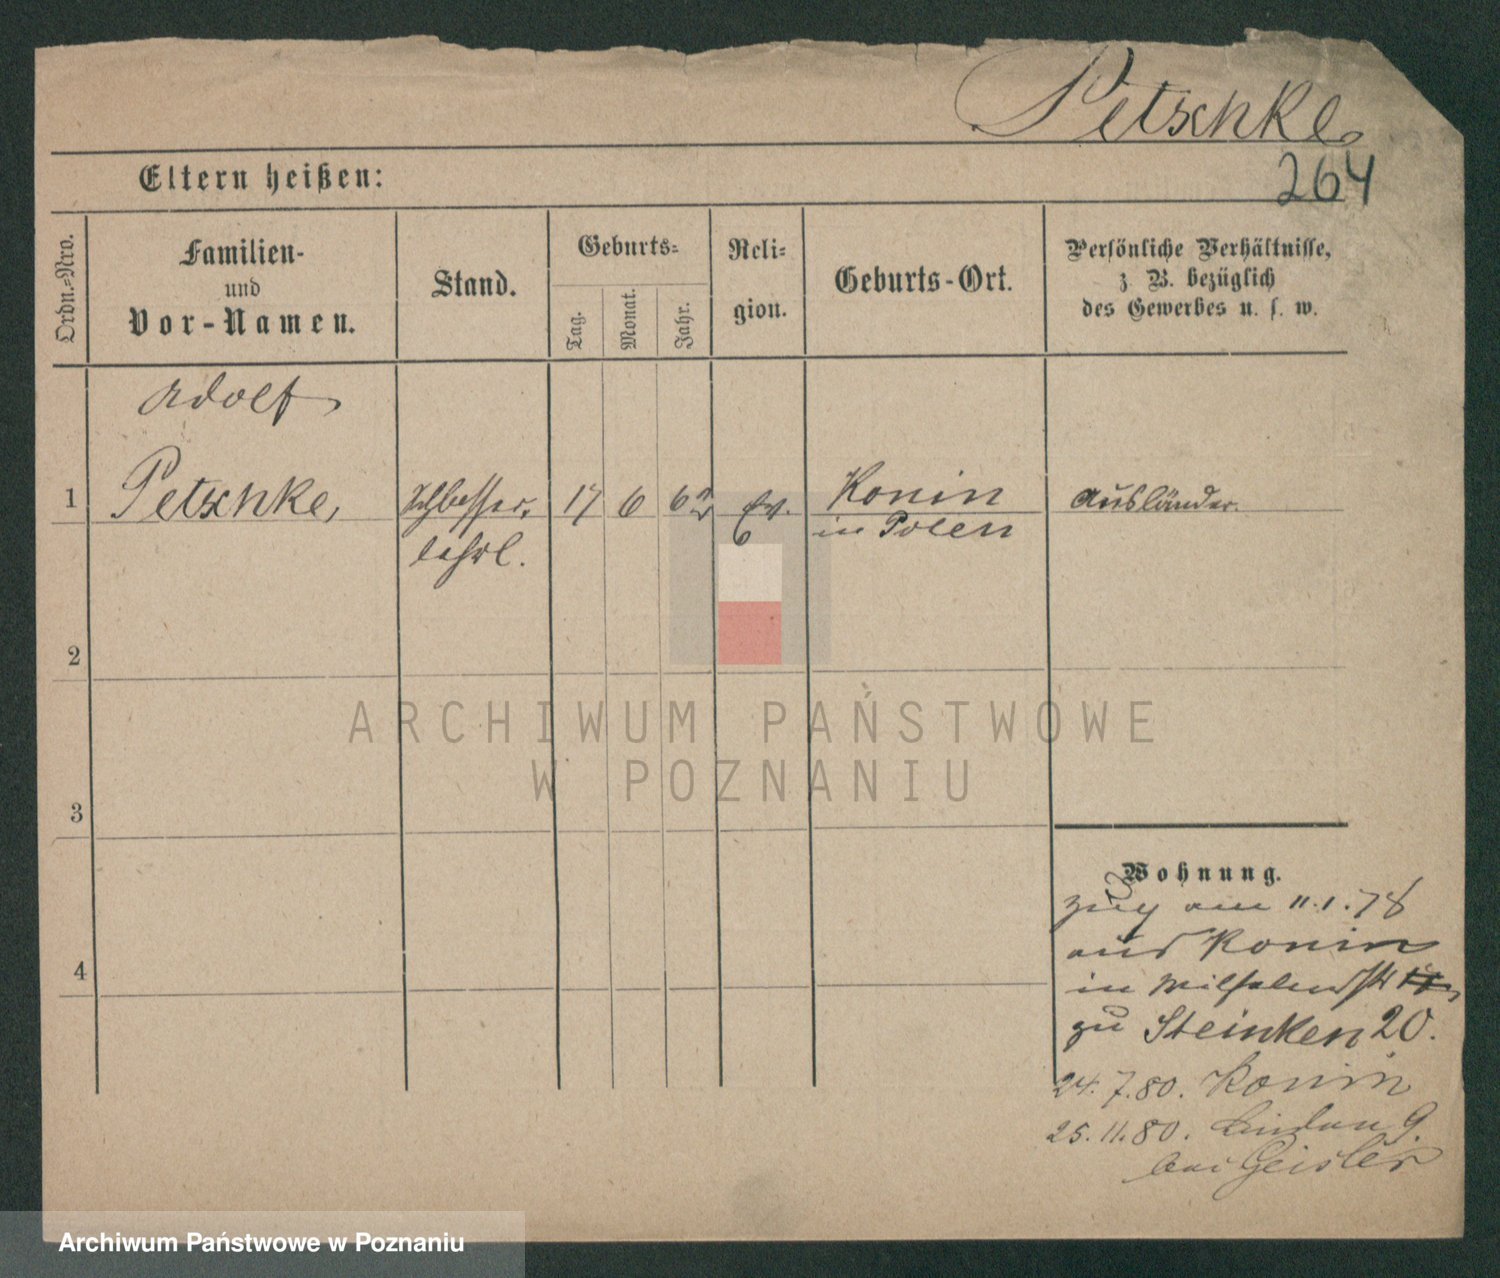 Petschke
264
Eltern heißen:
Ordn.-Nro.
Familien-
und
Vor-Namen.
Stand.
Geburts-
Tag.
Monat.
Jahr.
Reli-
gion.
Geburts-Ort.
Persönliche Verhältnisse,
z. B. bezüglich
des Gewerbes u. s. w.
Adolf
1 Petschke, Schlosser 17 6 62 Ev. Konin Ausländer.
lehrl. in Polen
2
3
4
Wohnung.
Zug am 11.1.78
aus Konin
in Wilhelmstr
zu Steinken 20.
24.7.80. Konin
25.11.80. Linden 9.
bei Geisler
ARCHIWUM PAŃSTWOWE
W POZNANIU
Archiwum Państwowe w Poznaniu